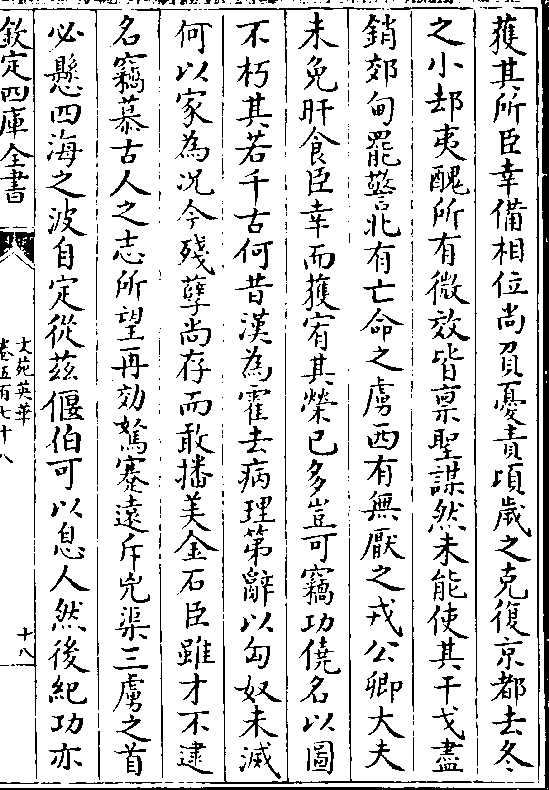 獲其所臣幸備相位尚負憂責頃歲之克復京都去冬
之小郄夷醜所有微效皆禀聖謀然未能使其干戈盡
銷郊甸罷警北有亡命之虜西有無厭之戎公卿大夫
未免旰食臣幸而獲宥其榮已多豈可竊功僥名以圖
不朽其若千古何昔漢為霍去病理第辭以匈奴未滅
何以家為况今殘孽尚存而敢播美金石臣雖才不逮
名竊慕古人之志所望再効駑蹇遠斥兇渠三虜之首
必懸四海之波自定從兹偃伯可以息人然後紀功亦
欽定四庫全書
文苑英華
卷五百七十八
十八